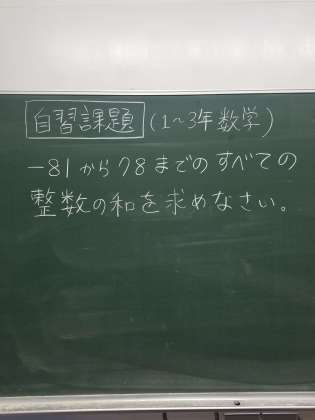 自習課題(1~3年数学)
-81から78までのすべての
整数の和を求めなさい。